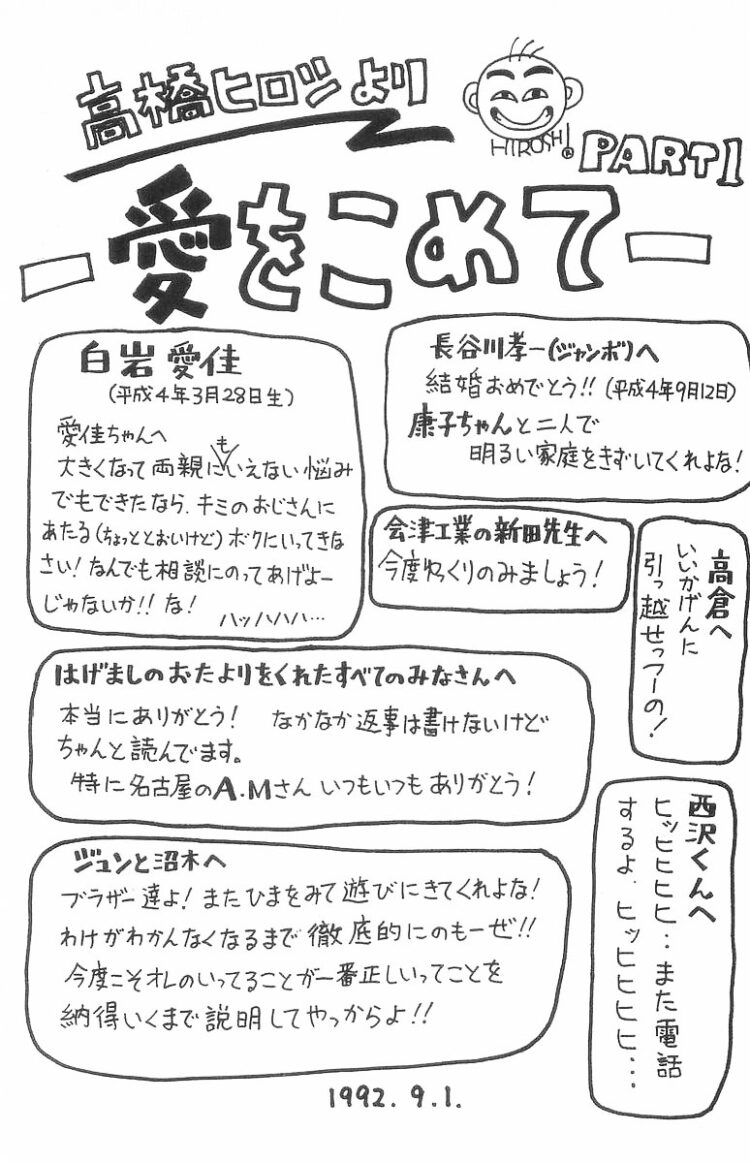 高橋ヒロシより
HIROSHI!
PART1
愛をこめて
白岩愛佳
(平成4年3月28日生)
愛佳ちゃんへ
大きくなって両親にもいえない悩み
でもできたなら、キミのおじさんに
あたる(ちょっととおいけど)ボクにいってきな
さい!なんでも相談にのってあげよー
じゃないか!!な!
ハッハハハ…
長谷川孝一(ジャンボ)へ
結婚おめでとう!!(平成4年9月12日)
康子ちゃんと二人で
明るい家庭をきずいてくれよな!
会津工業の新田先生へ
今度ゆっくりのみましょう!
高倉へ
いいかげんに
引っ越せっつーの!
はげましのおたよりをくれたすべてのみなさんへ
本当にありがとう! なかなか返事は書けないけど
ちゃんと読んでます。
特に名古屋のA.Mさんいつもいつもありがとう!
西沢くんへ
ヒッヒヒヒヒ…また電話
するよ.ヒッヒヒヒヒ…
ジュンと沼木へ
ブラザー達よ!またひまをみて遊びにきてくれよな!
わけがわかんなくなるまで徹底的にのもーぜ!!
今度こそオレのいってることが一番正しいってことを
納得いくまで説明してやっからよ!!
1992.9.1.